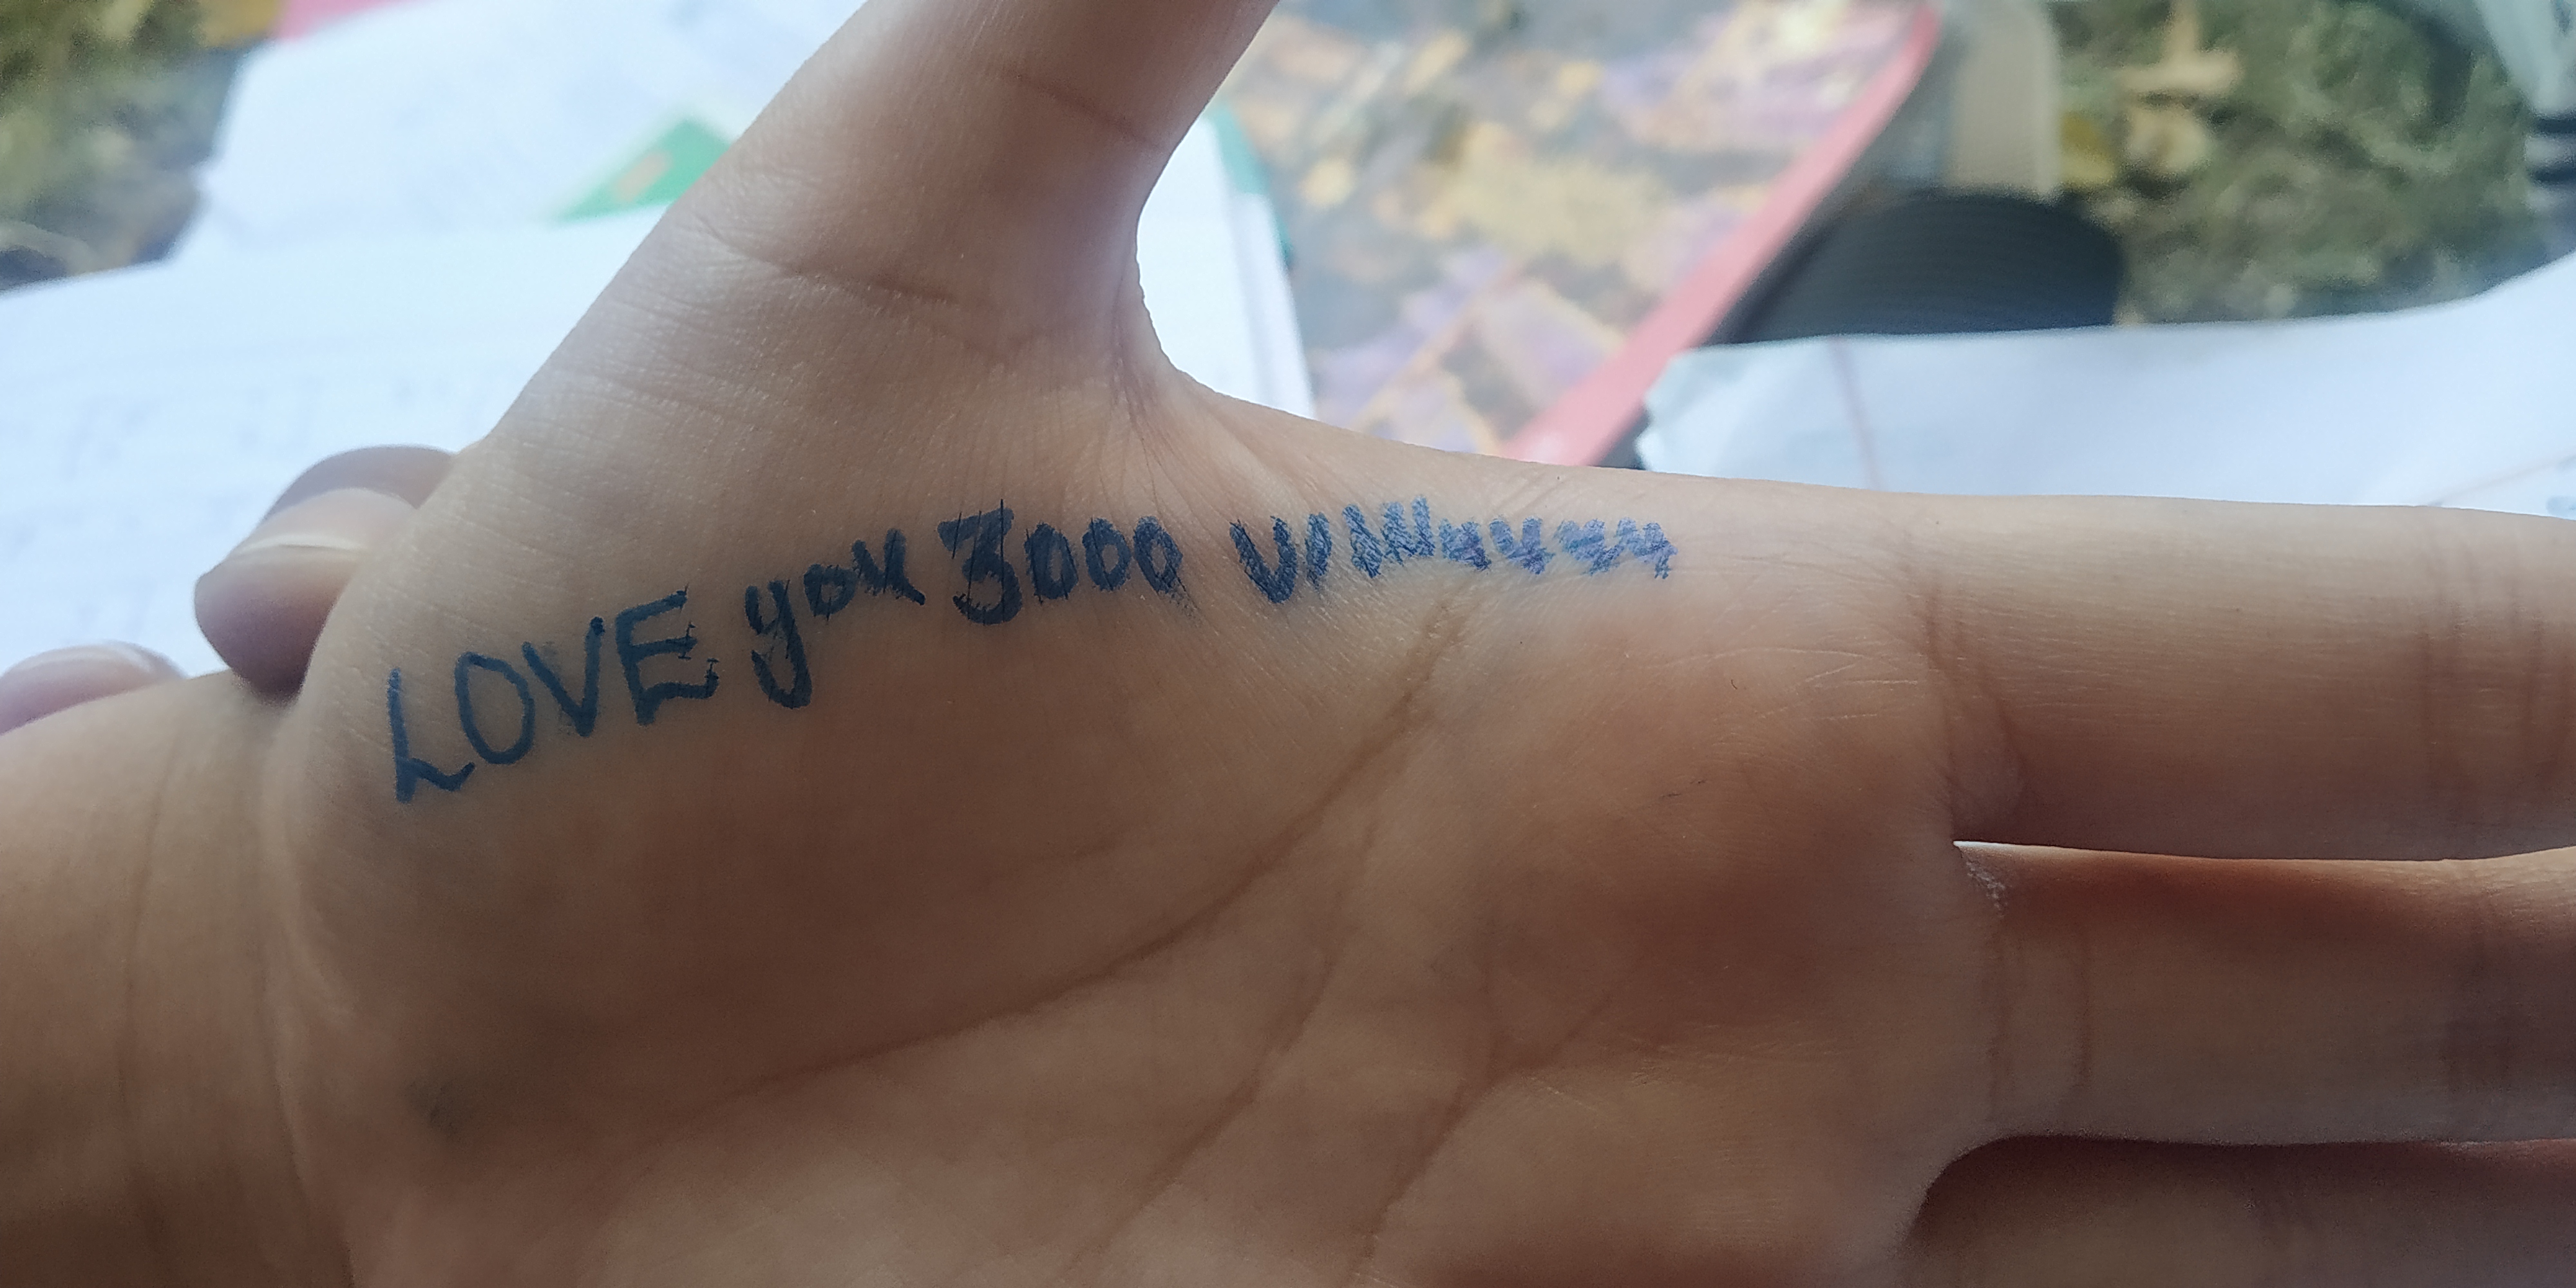 LOVE you 3000